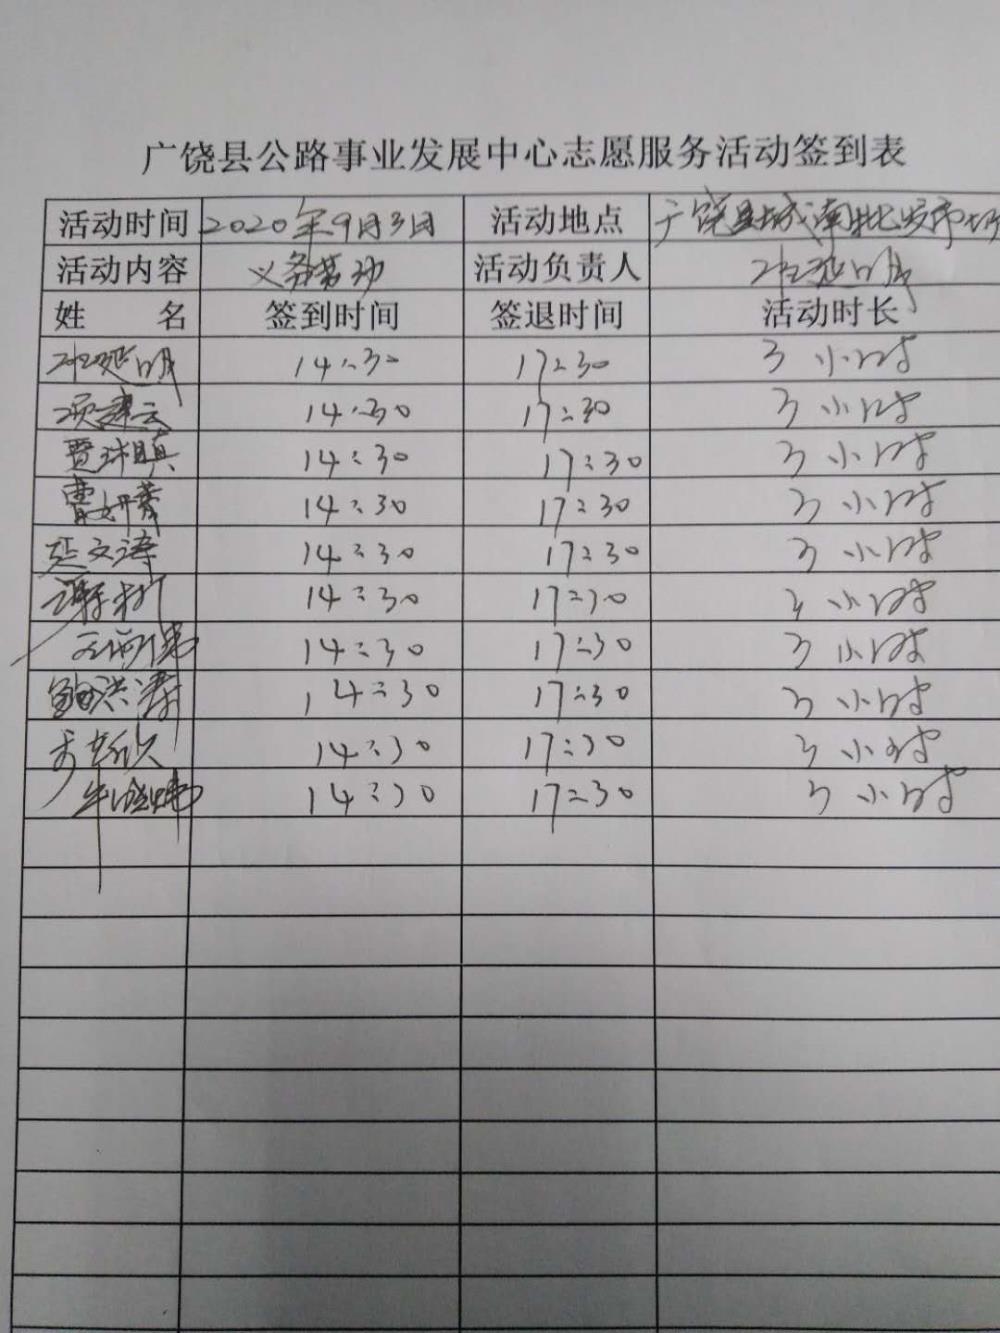 广饶县公路事业发展中心志愿服务活动签到表
活动时间 2020年9月3日 活动地点 广饶县城南批发市场
活动内容 义务劳动 活动负责人 延明
姓 名 签到时间 签退时间 活动时长
延明 14:30 17:30 3小时
项建云 14:30 17:30 3小时
贾 14:30 17:30 3小时
曹妍 14:30 17:30 3小时
延文涛 14:30 17:30 3小时
谢 14:30 17:30 3小时
14:30 17:30 3小时
鲍洪涛 14:30 17:30 3小时
14:30 17:30 3小时
牛晓 14:30 17:30 3小时